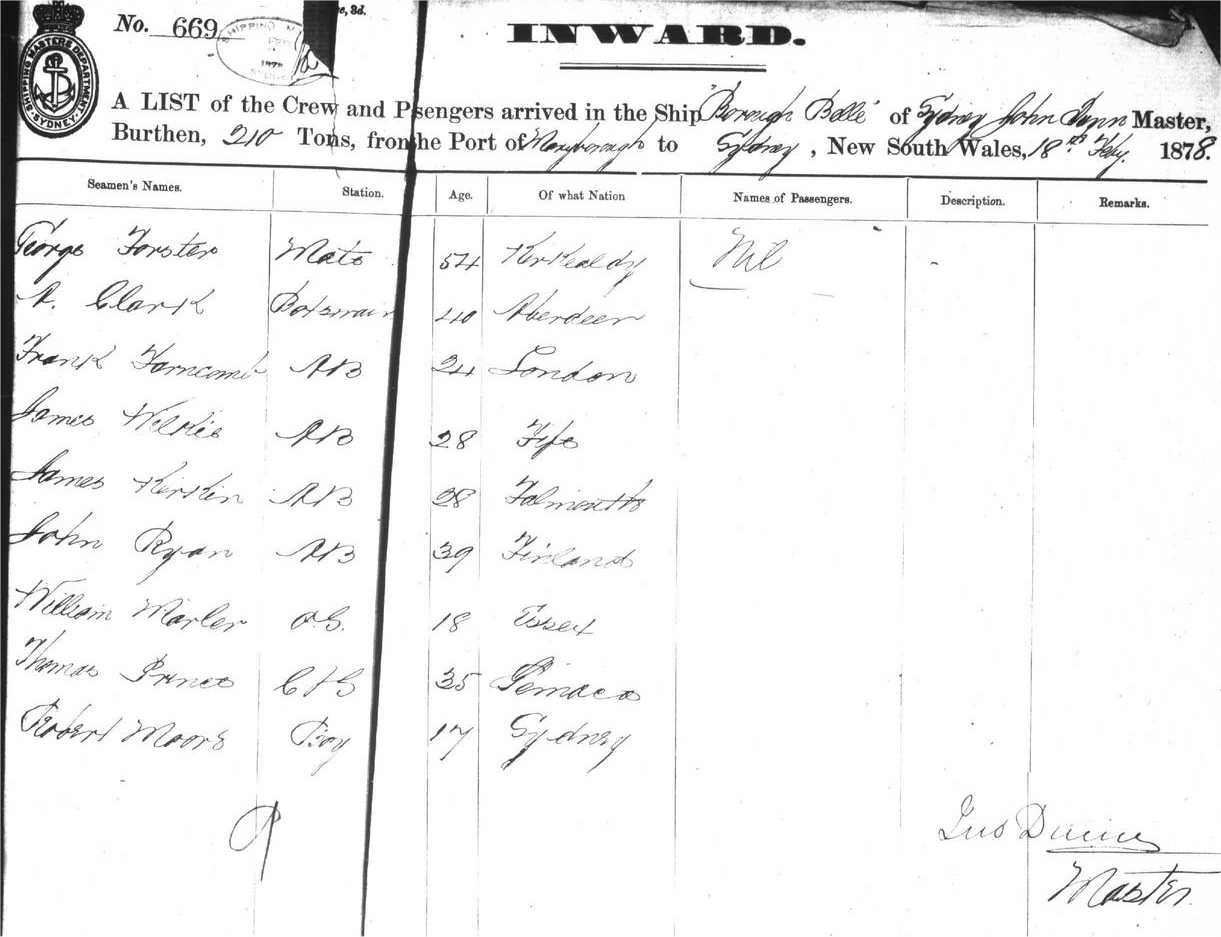 No. 669
, 3d.
SHIPPING MASTERS DEPARTMENT SYDNEY
1878
INWARD.
A LIST of the Crew and Psengers arrived in the Ship "Borough Belle" of Sydney John Dunn Master,
Burthen, 210 Tons, from the Port of Maryborough to Sydney, New South Wales, 18th Feby. 1878.
Seamen's Names. Station. Age. Of what Nation Names of Passengers. Description. Remarks.
George Forster Mate 54 Kirkcaldy Nil
A. Clark Botswain 40 Aberdeen
Frank Farncomb AB 24 London
James Wilkie AB 28 Fife
James Kerkin AB 28 Falmouth
John Ryan AB 39 Finland
William Marler O.S. 18 Essex
Thomas Prince C & S 35 Jemaca
Robert Moore Boy 17 Sydney
9
Jno Dunn
Master